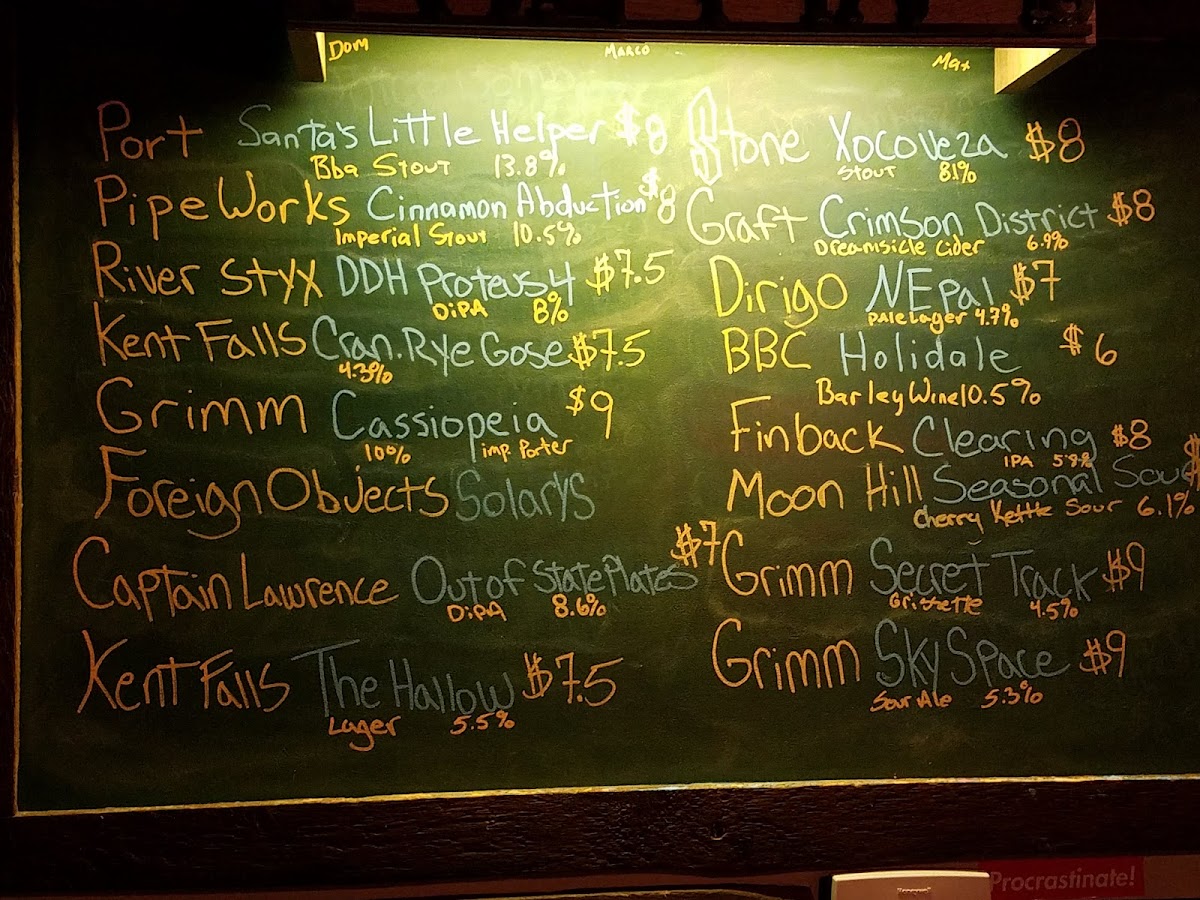 Dom
Marco
Max
Port Santa's Little Helper $8
Bba Stout 13.8%
PipeWorks Cinnamon Abduction $8
Imperial Stout 10.5%
River Styx DDH Proteus 4 $7.5
DiPA 8%
Kent Falls Cran. Rye Gose $7.5
4.3%
Grimm Cassiopeia $9
10% imp. Porter
Foreign Objects Solarys
Captain Lawrence Out of State Plates $7
DiPA 8.6%
Kent Falls The Hallow $7.5
Lager 5.5%
Stone Xocoveza $8
Stout 8.1%
Graft Crimson District $8
Dreamsicle Cider 6.9%
Dirigo NEpal $7
pale lager 4.7%
BBC Holidale $6
BarleyWine 10.5%
Finback Clearing $8
IPA
Moon Hill Seasonal Sour $
Cherry Kettle Sour 6.1%
Grimm Secret Track $9
Grisette 4.5%
Grimm Sky Space $9
Sour Ale 5.3%
Procrastinate!